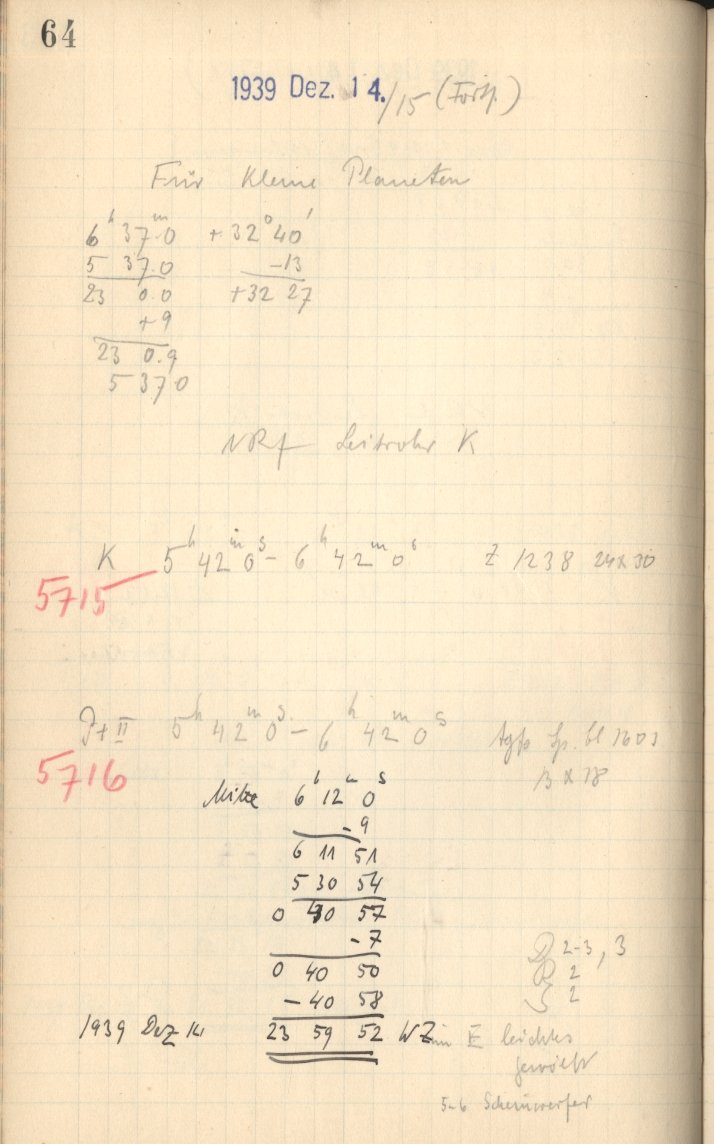 64
1939 Dez. 14./15 (Forts.)
Für Kleine Planeten
6ʰ 37ᵐ.0 +32° 40'
5 37.0 -13
23 0.0 +32 27
+9
23 0.9
5 37 0
Leitrohr K
K 5ʰ 42ᵐ 0ˢ - 6ʰ 42ᵐ 0ˢ Z 1238 24x30
5715
+ II 5ʰ 42ᵐ 0ˢ - 6ʰ 42ᵐ 0ˢ Agfa Sp. bl 1603
13 x 18
5716
Mitte 6ʰ 12ᵐ 0ˢ
-9
6 11 51
5 30 54
0 40 57
-7
0 40 50
-40 58
1939 Dez 14 23 59 52 WZ
D 2-3, 3
R 2
S 2
im E leichtes
gewölk
5-6 Scheinwerfer